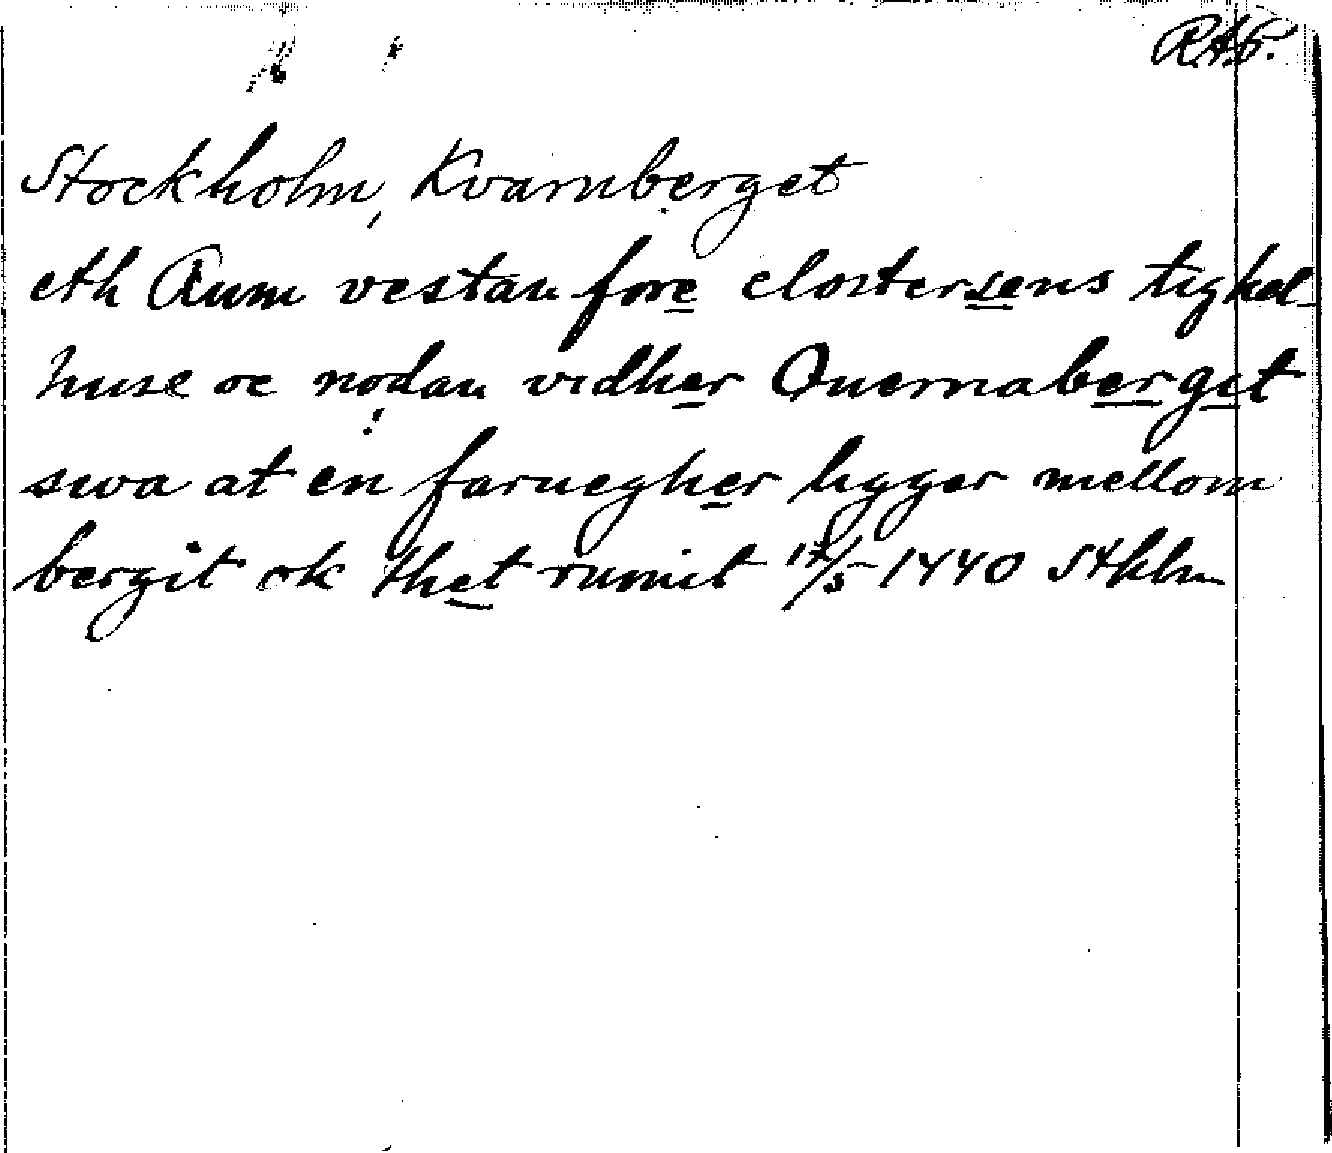 RAP.
Stockholm, Kvarnberget
eth Rum vestan fore clostersens tighel-
huse oc nordan vidher Quernaberget
swa at en faruegher ligger mellom
bergit ok thet rumit 17/5 1440 Sthlm